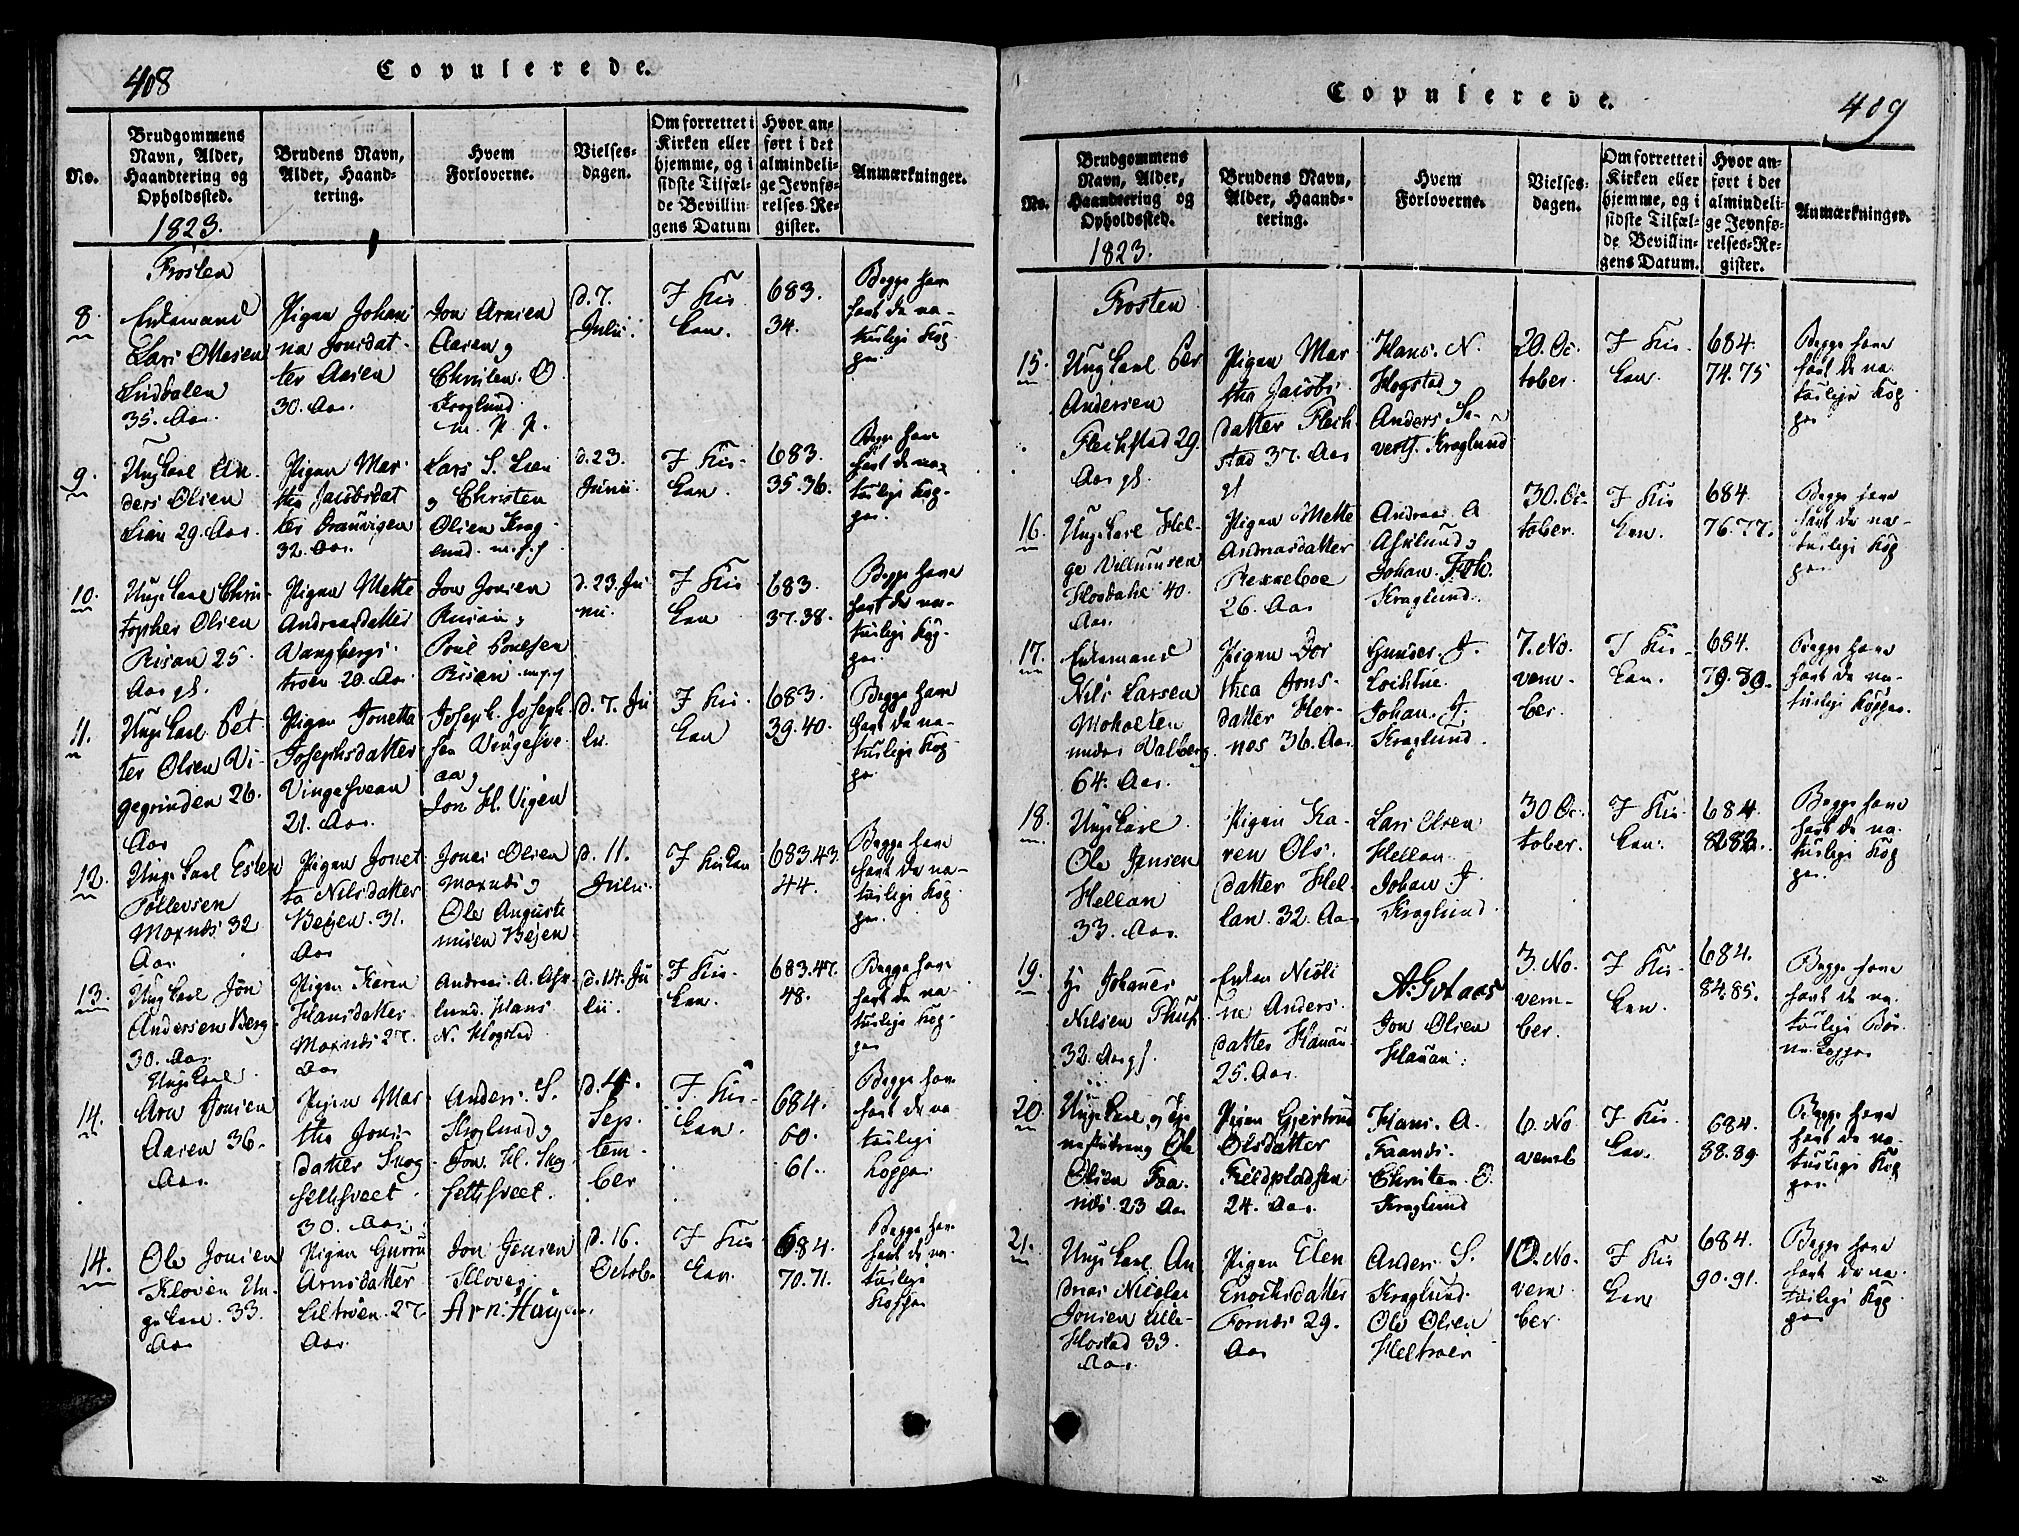 408
Copulerede.
No.
Brudgommens
Navn, Alder,
Haandtering og
Opholdssted.
1823.
Brudens Navn,
Alder, Haand-
tering.
Hvem
Forloverne.
Vielses-
dagen.
Om forrettet i
Kirken eller
hjemme, og i
sidste Tilfæl-
de Bevillin
gens Datum
Hvor an-
ført i det
almindeli-
ge Jevnfø-
relses-Re-
gister.
Anmærkninger.
Frosten
8.
Enkemand
Lars Ottesen
35. Aar.
Pigen Johan
na Jonsdat-
ter Aasen
30. Aar.
Jon Arnsen
Aasen og
Christen. O
Kraglund
m. p. p.
d. 7.
Julii.
I Kir
ken.
683.
34.
Begge have
havt de na-
turlige Kop-
per.
9.
Ungkarl An-
ders Olsen
Lian 29. Aar.
Pigen Mar-
tha Jacobsdat
ter
32. Aar.
Lars S. Lien
og Christen
Olsen Krag-
lund. m. p. p
d. 23.
Junii.
I Kir-
ken.
683.
35. 36.
Begge have
havt de na-
turlige Kop-
per.
10.
Ungekarl Chris-
topher Olsen
Risan 25.
Aar gl.
Pigen Mette
Andreasdatter
Vangbergs-
troen 20. Aar
Jon Jonsen
Risan og
Poul Poulsen
Risan. m. p. p
d. 23. Ju
nii.
I Kir
ken.
683.
37. 38.
Begge have
havt de na-
turlige Kop-
per.
11.
Ungekarl Pet-
ter Olsen Vi-
gegrinden 26.
Aar
Pigen Jonetta
Josephsdatter
Vingesvean
21. Aar.
Joseph. Joseph-
sen Vingesve-
aa og
Jon H. Vigen
d. 7. Ju
lii.
I Kir-
ken.
683.
39. 40.
Begge have
havt de na-
turlige Kop-
per.
12.
Ungekarl Esten
Tollevsen
Moxnæs 32
Aar.
Pigen Jonet-
ta Nilsdatter
Vejen. 31.
Aar
Jonas Olsen
Moxnæs og
Ole Auguste
nusen Vejen
d. 11.
Julii.
I Kirken
683. 43.
44.
Begge have
havt de na-
turlige Kop-
per.
13.
Ungkarl Jon
Andersen Berg-
30. Aar.
Pigen Karen
Hansdatter
Moxnæs 27.
Aar
Andreas. A. Ask-
lund. Hans
N. Hogstad
d. 14. Ju
lii.
I Kir-
ken.
683. 47.
48.
Begge have
havt de na-
turlige Kop-
per
14.
Ungekarl.
Arn Jonsen
Aasen 36-
Aar.
Pigen Mar-
tha Jons-
datter Skog
30. Aar.
Anders. S.
Kroglund og
Jon. H. Skog-
d. 4.
Sep-
tem-
ber
I Kir-
ken.
684.
60.
61.
Begge have
havt de na-
turlige
Kopper
14.
Ole Jonsen
Kloven Un-
gekarl. 33.
Aar
Pigen Gurru
Arnsdatter
27.
Aar.
Jon Jensen
Kloveg
Arn: Haugen.
d. 16.
Octob.
I Kir
ken.
684.
70. 71.
Begge have
havt de na-
turlige
Kopper
409
Copulerede.
No.
Brudgommens
Navn, Alder,
Haandtering og
Opholdssted.
1823.
Brudens Navn,
Alder, Haand-
tering.
Hvem
Forloverne.
Vielses-
dagen.
Om forrettet i
Kirken eller
hjemme, og i
sidste Tilfæl-
de Bevillin-
gens Datum.
Hvor an-
ført i det
almindeli-
ge Jevnfø-
relses-Re-
gister.
Anmærkninger.
Frosten
15.
Ungkarl Per
Andersen
Flechstad 29.
Aar gl.
Pigen Mar
tha Jacobs-
datter Flech
stad 37. Aar
gl
Hans. N.
Hogstad og
Anders Si-
vertss. Kraglund
20. Oc-
tober.
I Kir-
ken.
684.
74. 75
Begge have
havt de na-
turlige Kop
per
16.
Ungekarl Hel-
ge Villumsen
Hosdahl 40.
Aar.
Pigen Mette
Andreasdatter
Rexneboe
26. Aar
Andreas. A
Asklund og
Johan. Joh.
Kraglund.
30. Oc-
tober.
I Kir
ken.
684.
76. 77.
Begge have
havt de na-
turlige Kop
per
17.
Enkemand
Nils Larsen
Moholten
under Valberg
64. Aar.
Pigen Dor
thea Jons-
datter Her-
nes 36. Aar
Gunder. J.
Lochtue.
Johan. J.
Kraglund.
7. No.
vem-
ber.
I Kir-
ken.
684.
79. 79.
Begge have
havt de na-
turlige Kopper.
18.
Ungekarl.
Ole Jensen
Hellan
33. Aar.
Pigen Ka-
ren Ols-
datter Hel-
lan. 32. Aar
Lars Olsen
Hellan.
Johan J.
Kraglund.
30 Oc-
tober.
I Kir
ken.
684.
82 83.
Begge have
havt de na-
turlige Kop
per.
19.
Hr Johanes
Nilsen
32. Aar gl.
Enken Nicoli
ne Anders-
datter Hauan
25. Aar.
A. Gvtaas
Jon Olsen
Hauan.
3. No.
vem-
ber.
I Kir-
ken.
684.
84. 85.
Begge have
havt de na-
turlige Bør-
nekopper
20.
Ungekarl og
Ole
Olsen Faa-
næs. 23 Aar
Pigen Gjertrud
Olsdatter
Feldpladsen
24. Aar.
Hans. A.
Faanæs.
Christen. O.
Kraglund
6. No
vemb
I Kir
ken.
684.
88. 89.
Begge have
havt de na-
turlige Kop
per.
21.
Ungekarl An
dreas Nicolai
Jonsen Lille-
Hostad 33.
Aar.
Pigen Elen
Enochsdatter
Fornæs 29.
Aar
Anders. S.
Kraglund.
Ole Olsen
Heltroen
10. No-
vem
ber.
I Kir
ken
684.
90. 91.
Begge have
havt de na-
turlige Kop
per